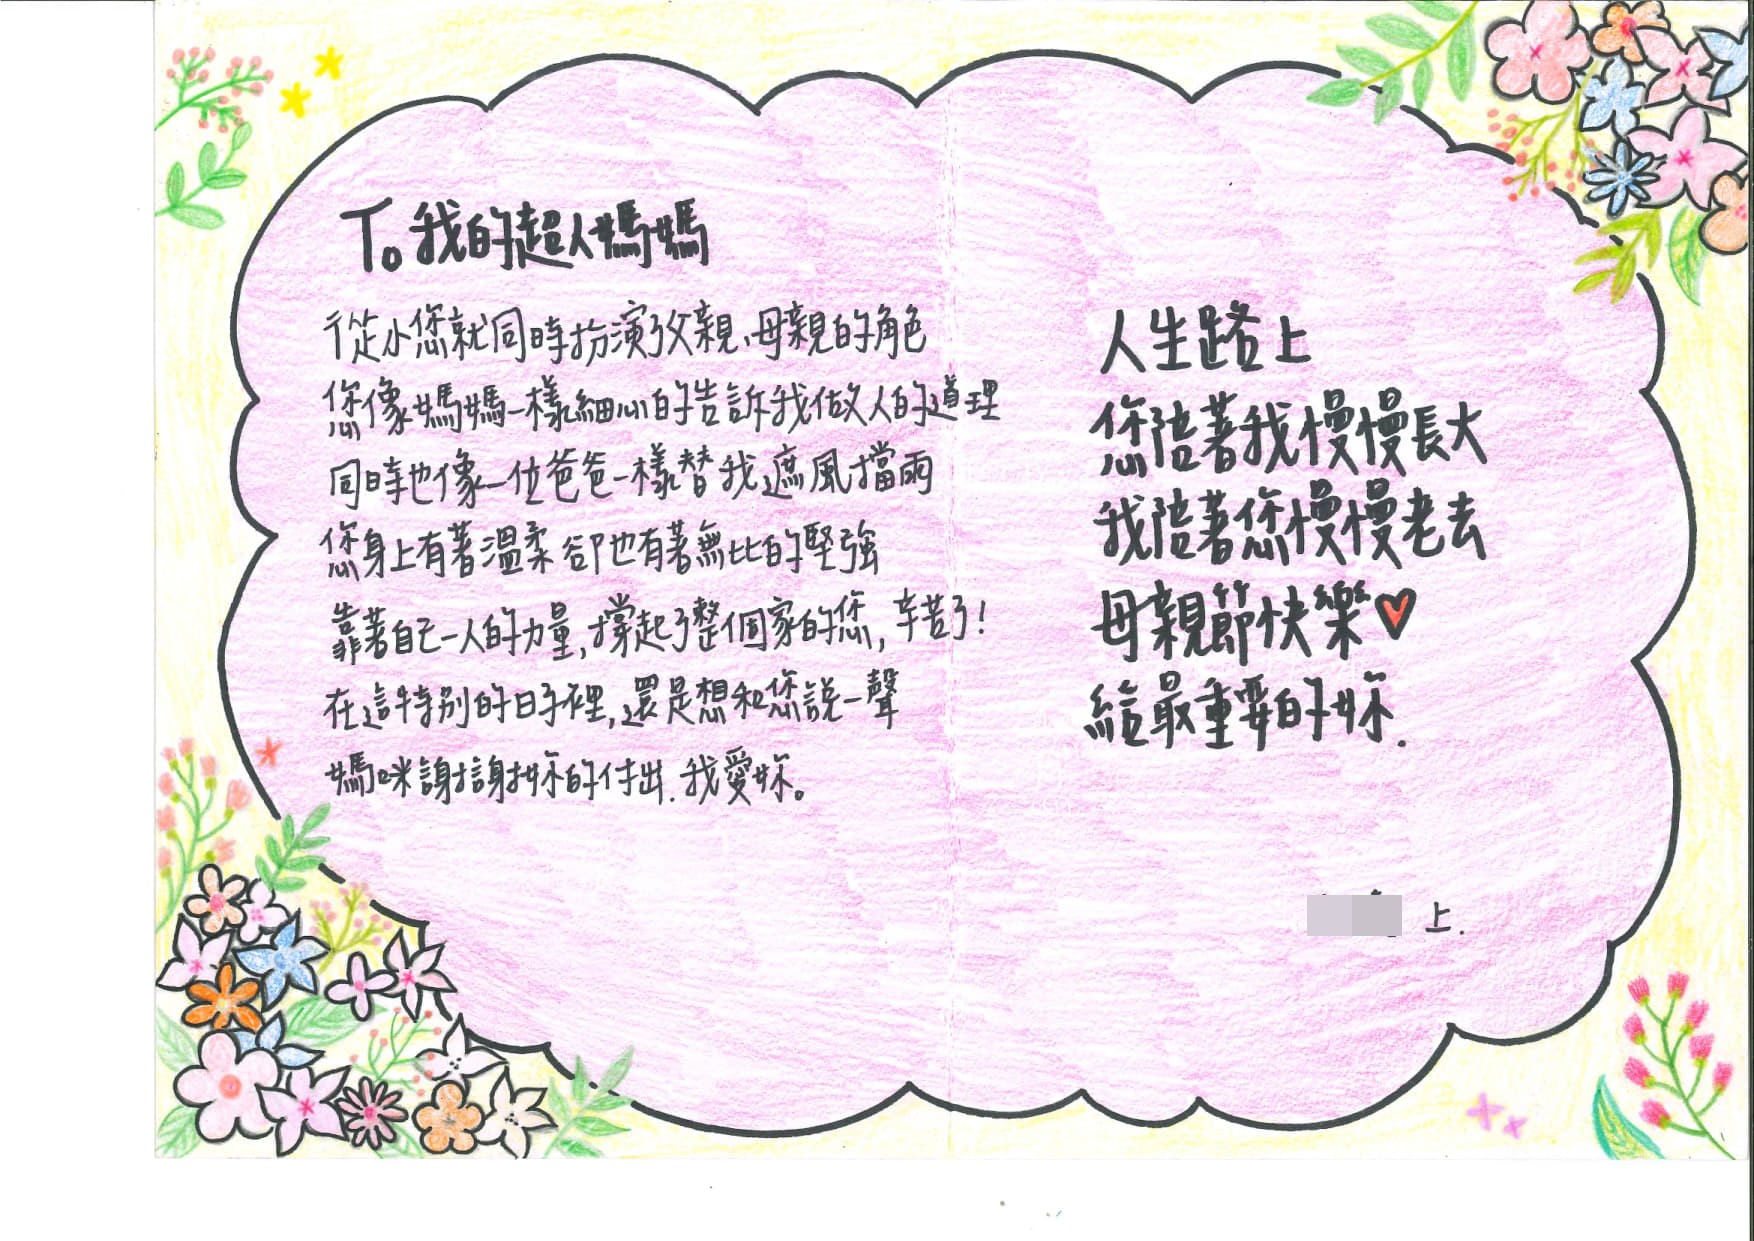 To 我的超人媽媽
從小您就同時扮演了父親、母親的角色
您像媽媽一樣細心的告訴我做人的道理
同時也像一位爸爸一樣替我遮風擋雨
您身上有著溫柔卻也有著無比的堅強
靠著自己一人的力量,撐起了整個家的您,辛苦了!
在這特別的日子裡,還是想和您說一聲
媽咪謝謝妳的付出.我愛妳。
人生路上
您陪著我慢慢長大
我陪著您慢慢老去
母親節快樂♥
給最重要的妳.
上.